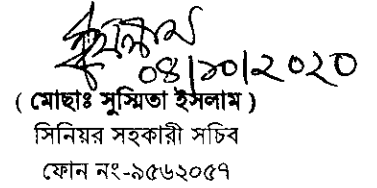 ০৪/১০/২০২০
( মোছাঃ সুস্মিতা ইসলাম )
সিনিয়র সহকারী সচিব
ফোন নং-৯৫৬২০৫৭